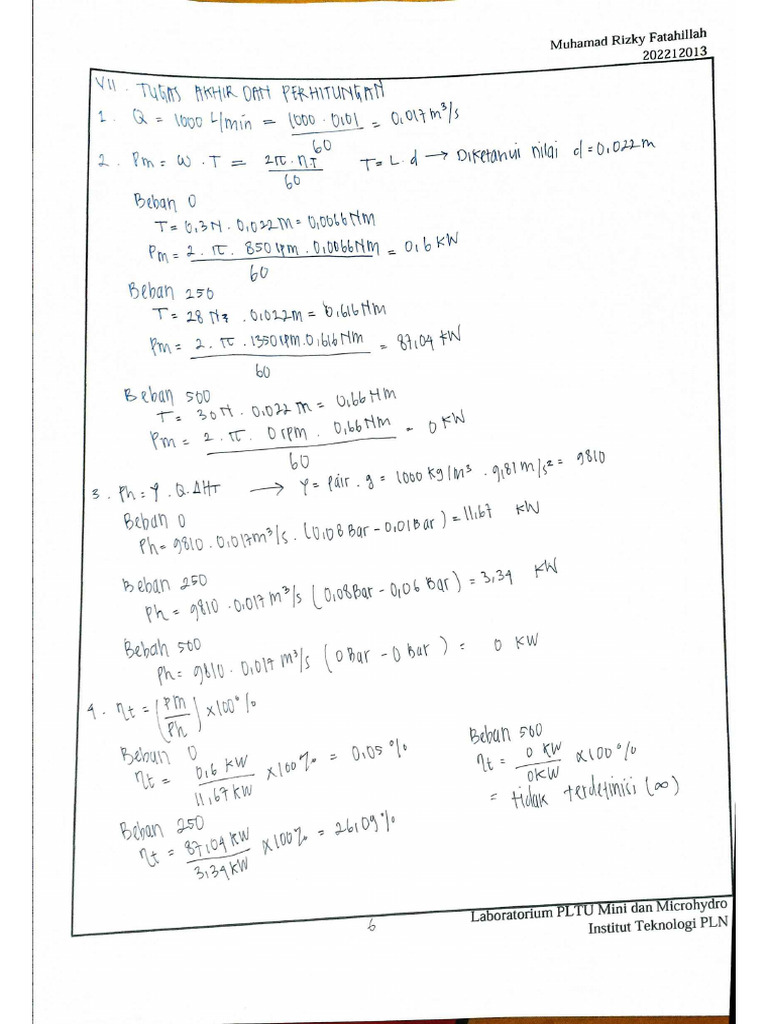 Muhamad Rizky Fatahillah
202212013
VII. TUGAS AKHIR DAN PERHITUNGAN
1. Q = 1000 L/min = 1000 . 0,01 / 60 = 0,017 m³/s
2. Pm = ω . T = 2π . n.T / 60 T = L . d → Diketahui nilai d = 0,022 m
Beban 0
T = 0,3 N . 0,022 m = 0,0066 Nm
Pm = 2 . π . 850 rpm . 0,0066 Nm / 60 = 0,6 KW
Beban 250
T = 28 N . 0,022 m = 0,616 Nm
Pm = 2 . π . 1350 rpm . 0,616 Nm / 60 = 87,04 KW
Beban 500
T = 30 N . 0,022 m = 0,66 Nm
Pm = 2 . π . 0 rpm . 0,66 Nm / 60 = 0 KW
3. Ph = γ . Q . ΔHT → γ = ρair . g = 1000 kg/m³ . 9,81 m/s² = 9810
Beban 0
Ph = 9810 . 0,017 m³/s . (0,08 Bar - 0,01 Bar) = 11,67 KW
Beban 250
Ph = 9810 . 0,017 m³/s (0,08 Bar - 0,06 Bar) = 3,34 KW
Beban 500
Ph = 9810 . 0,017 m³/s (0 Bar - 0 Bar) = 0 KW
4. ηt = (Pm / Ph) x 100%
Beban 0
ηt = 0,6 KW / 11,67 KW x 100% = 0,05 %
Beban 250
ηt = 87,04 KW / 3,34 KW x 100% = 26,09 %
Beban 500
ηt = 0 KW / 0 KW x 100%
= tidak terdefinisi (∞)
Laboratorium PLTU Mini dan Microhydro
6
Institut Teknologi PLN